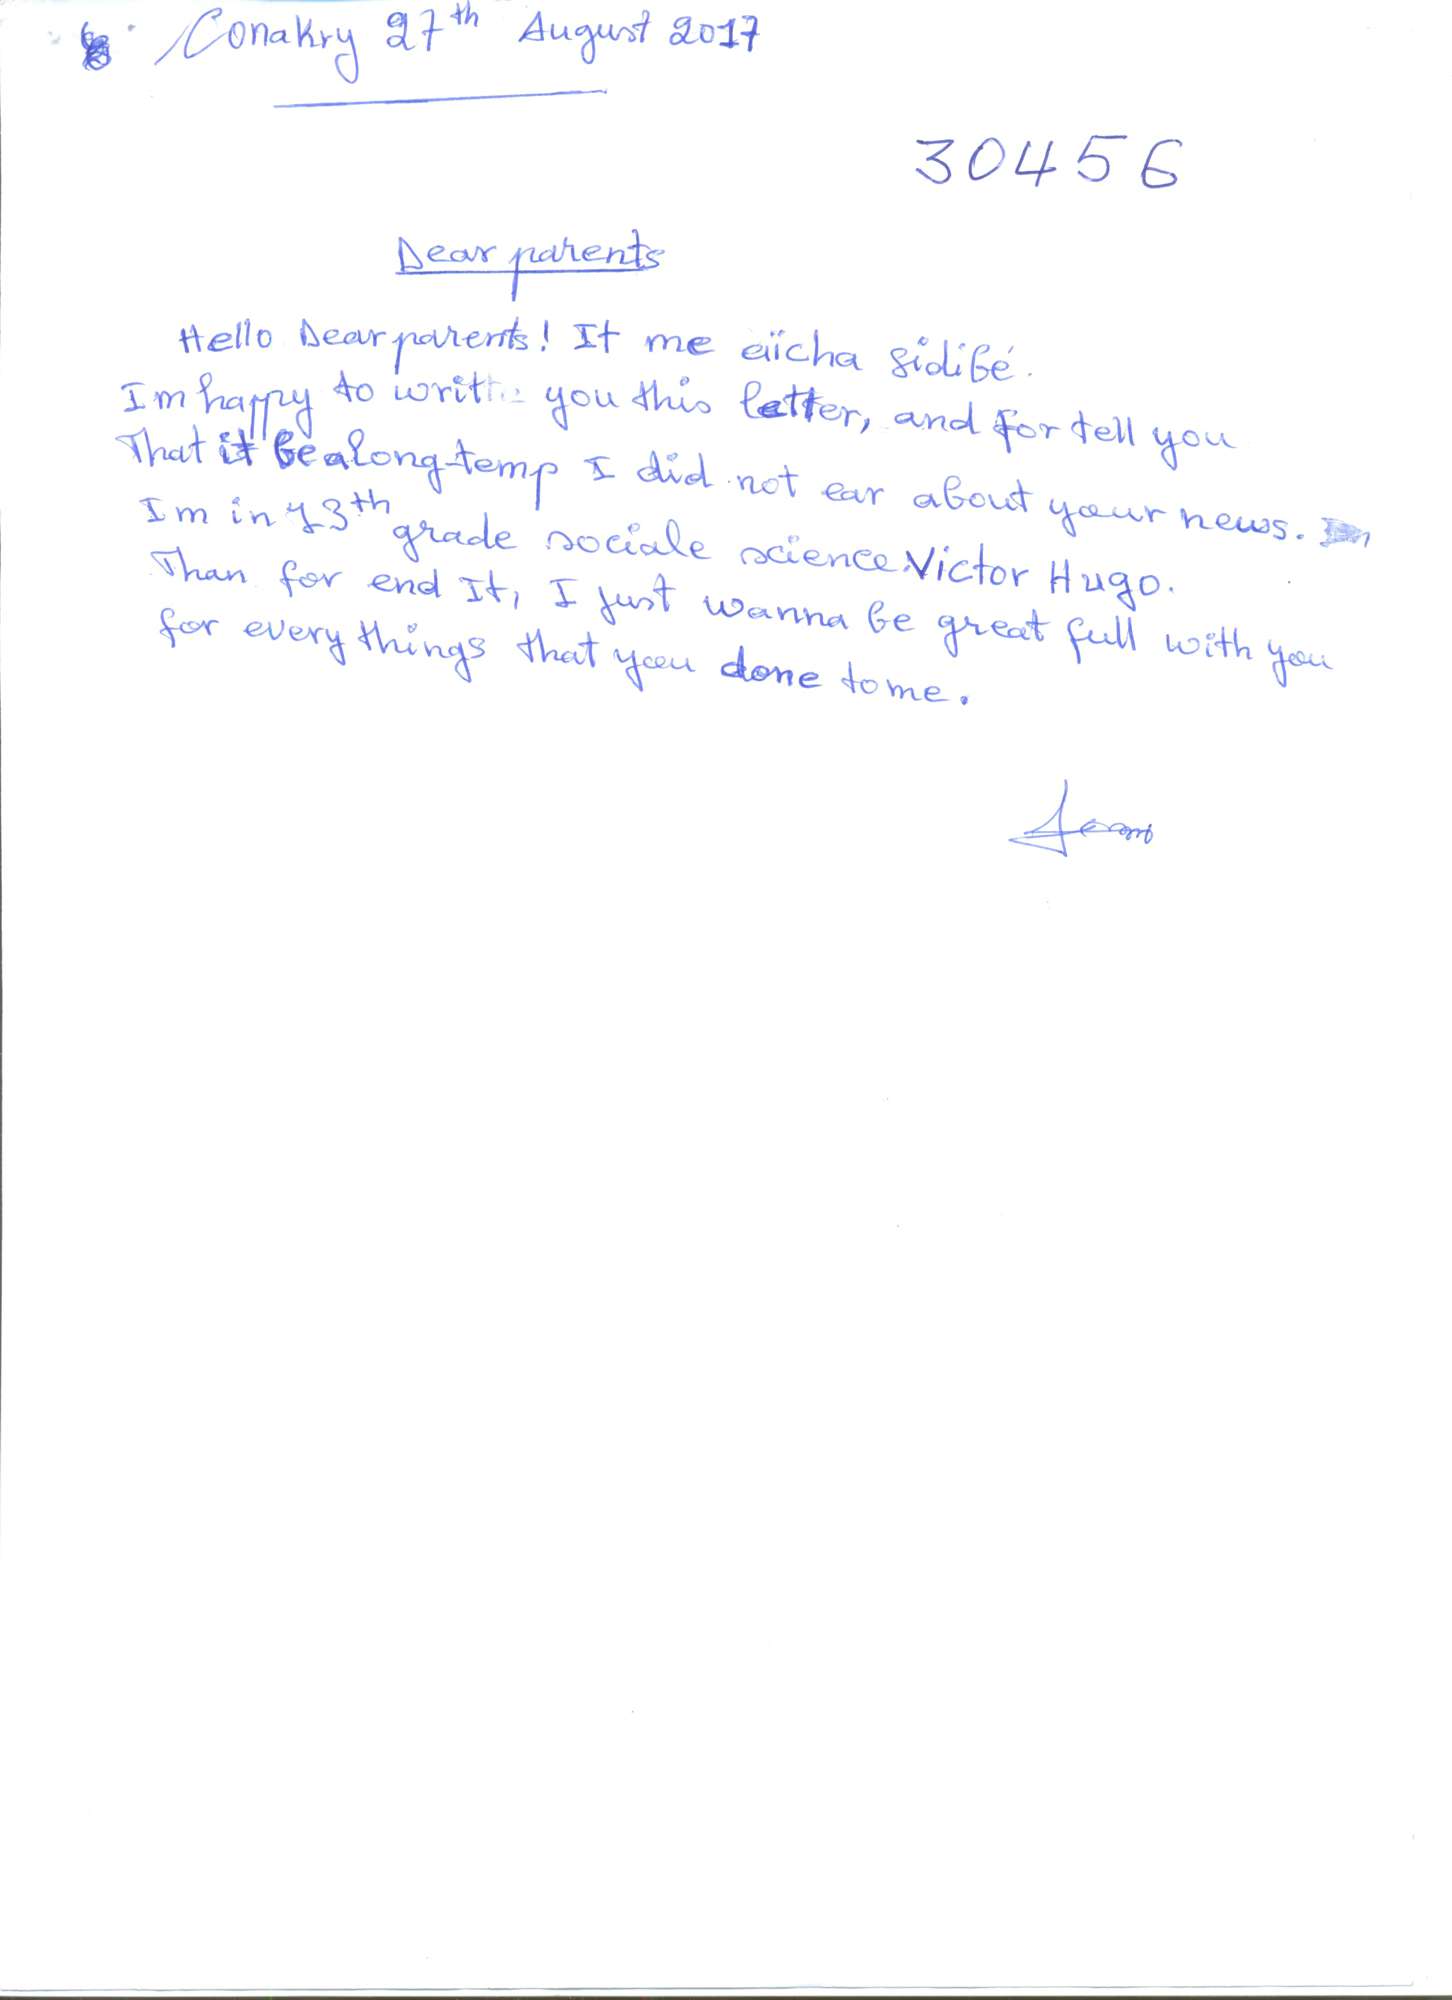 Conakry 27th August 2017
30456
Dear parents
Hello Dear parents! It me aïcha Sidibé.
Im happy to writ you this letter, and for tell you
That it be a long temp I did not ear about your news.
Im in 13th grade sociale science Victor Hugo.
Than for end It, I just wanna be great full with you
for every things that you done to me.